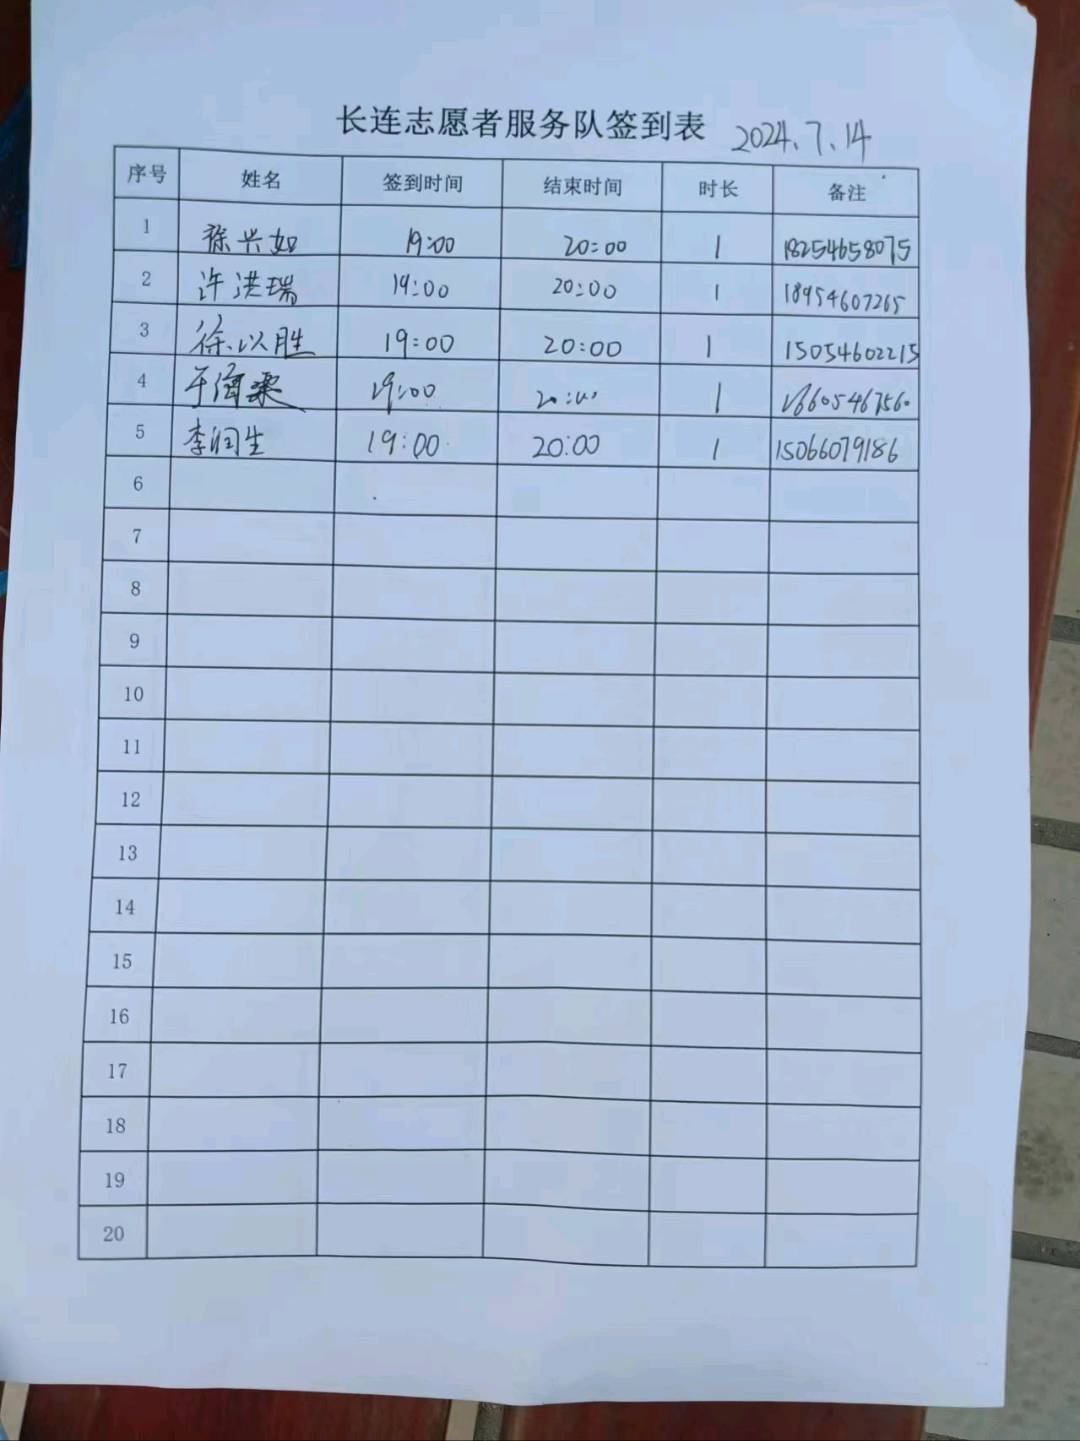 长连志愿者服务队签到表 2024.7.14
序号 姓名 签到时间 结束时间 时长 备注
1 徐兴如 19:00 20:00 1 18254658075
2 许洪瑞 19:00 20:00 1 18954607265
3 徐以胜 19:00 20:00 1 15054602215
4 19:00 20:00 1
5 李润生 19:00 20:00 1 15066079186
6
7
8
9
10
11
12
13
14
15
16
17
18
19
20